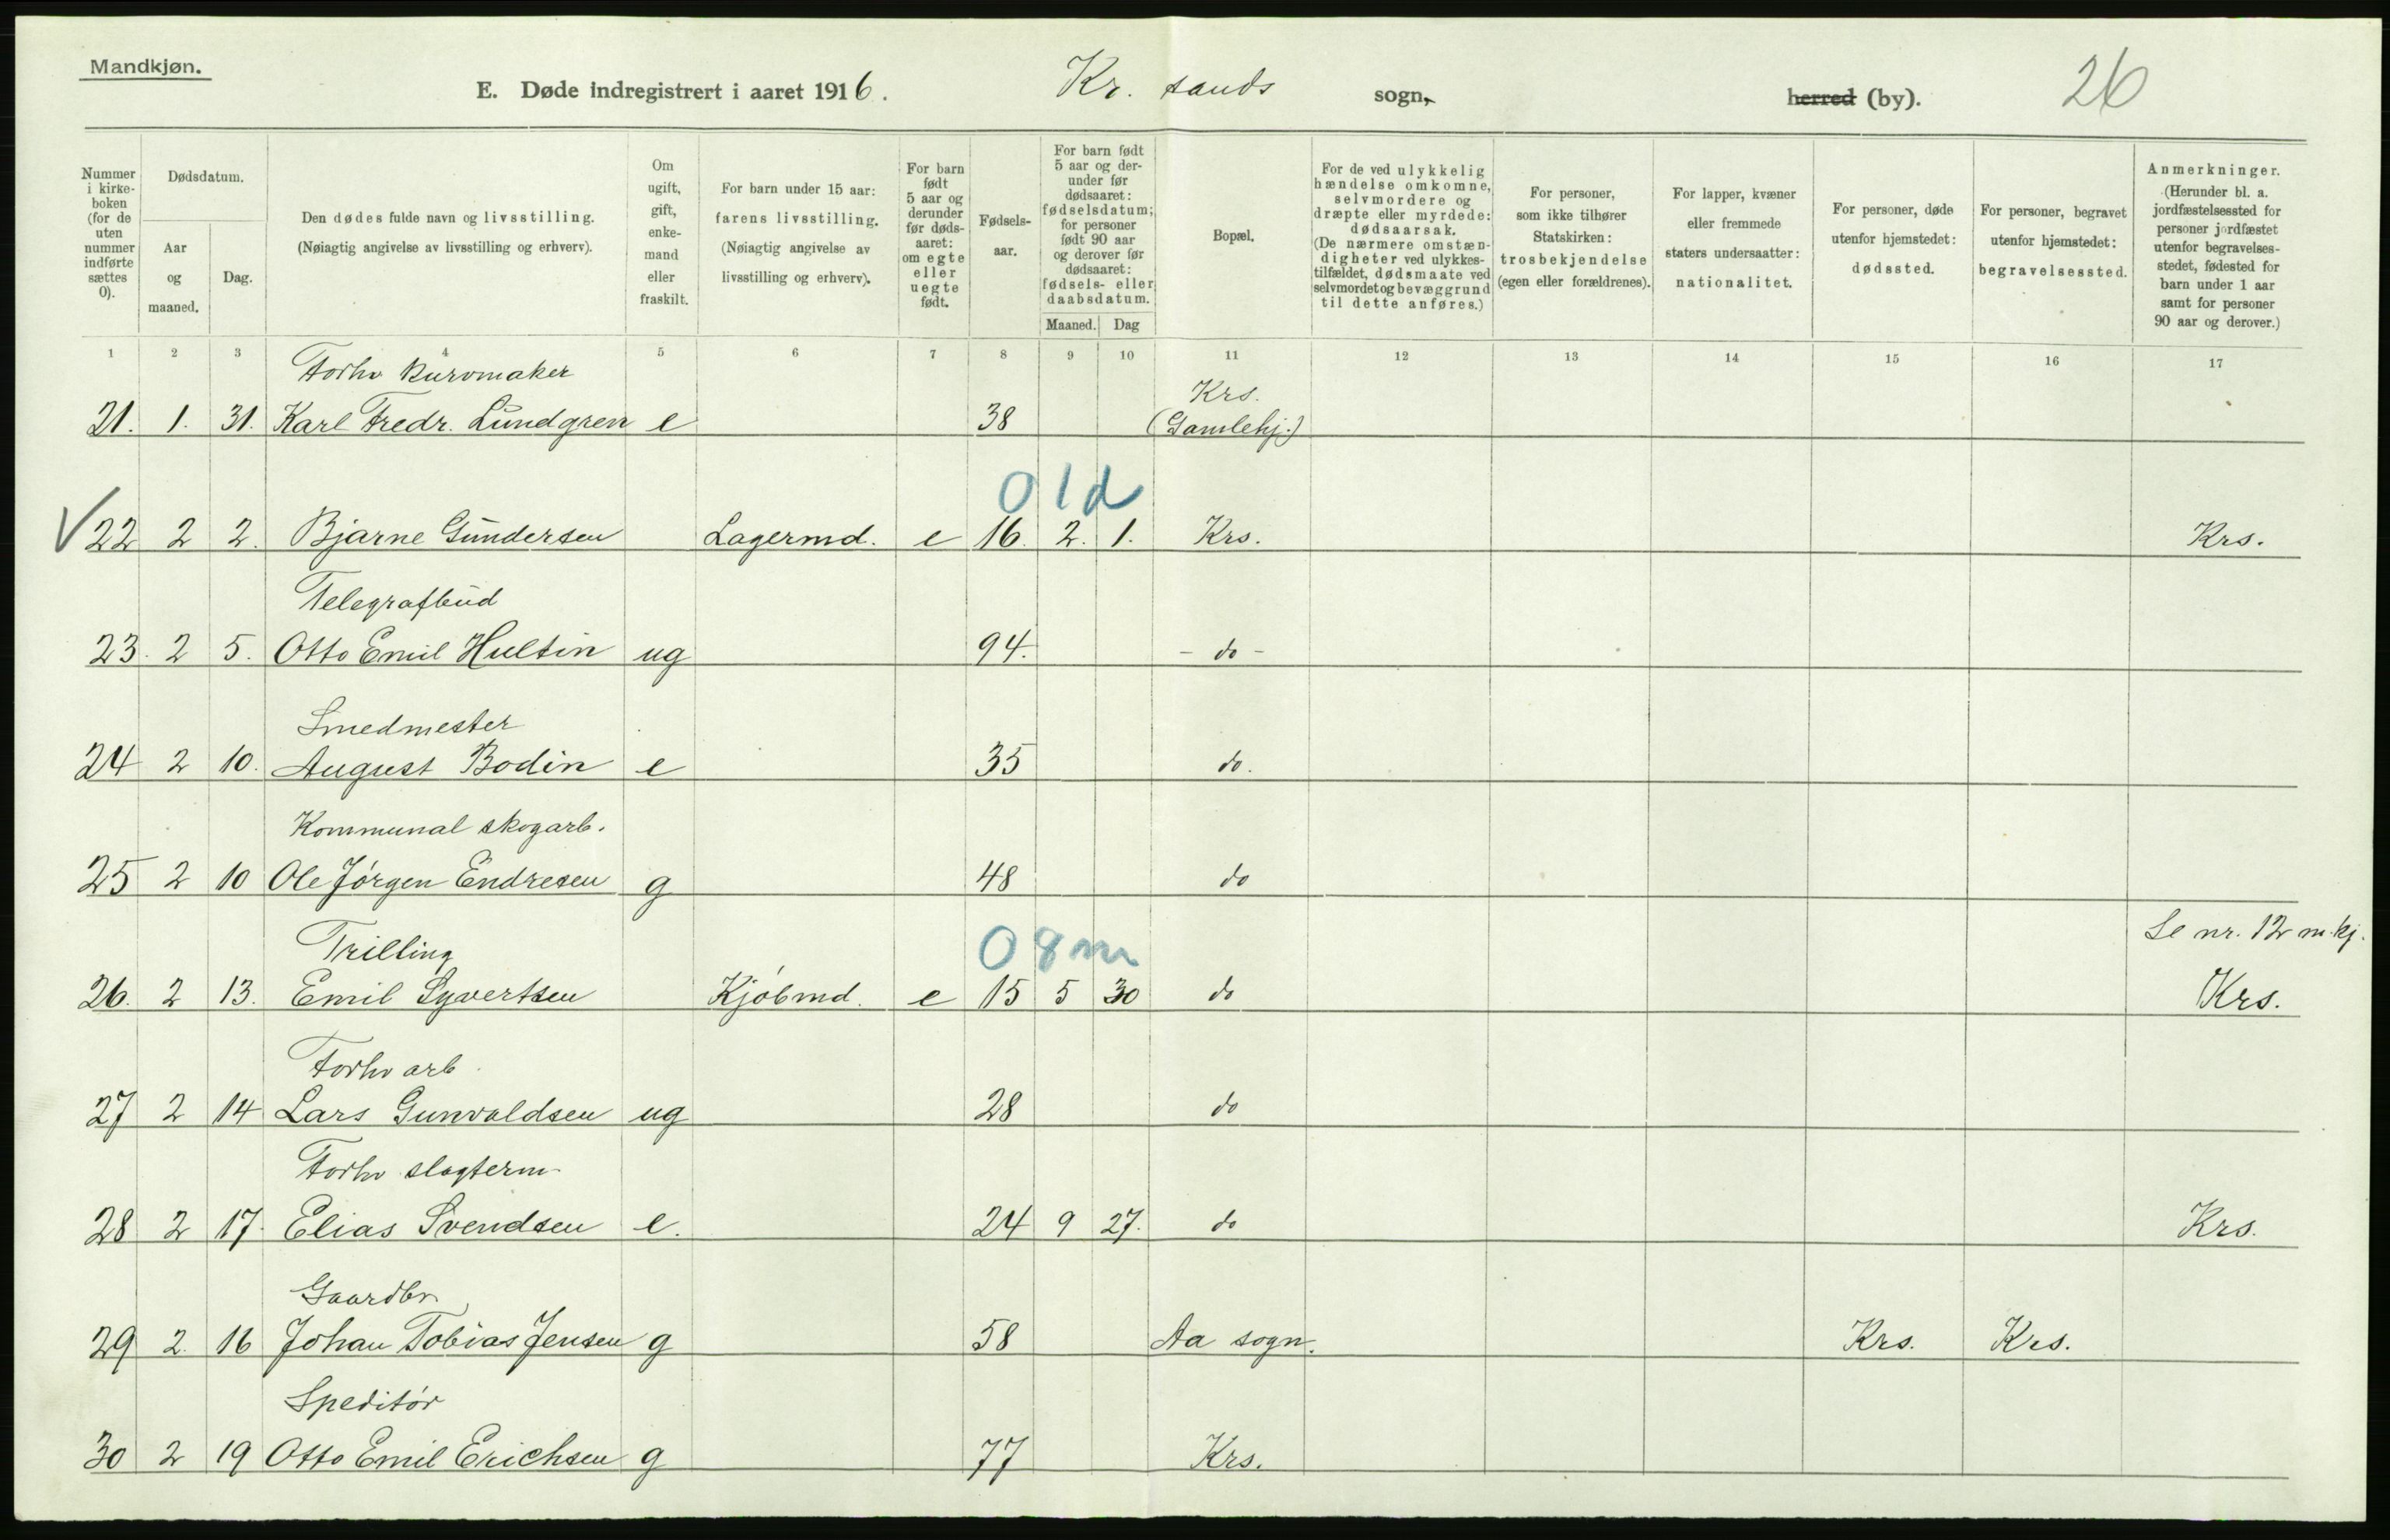 Mandkjøn.
E. Døde indregistrert i aaret 1916. Kr. sands sogn, herred (by). 26
Nummer i kirke-boken (for de uten nummer indførte sættes 0).
Dødsdatum.
Aar og maaned.
Dag.
Den dødes fulde navn og livsstilling.
(Nøiagtig angivelse av livsstilling og erhverv).
Om ugift, gift, enke-mand eller fraskilt.
For barn under 15 aar: farens livsstilling.
(Nøiagtig angivelse av livsstilling og erhverv).
For barn født 5 aar og derunder før døds-aaret: om egte eller uegte født.
Fødsels-aar.
For barn født 5 aar og der-under før dødsaaret: fødselsdatum; for personer født 90 aar og derover før dødsaaret: fødsels- eller daabsdatum.
Maaned. Dag
Bopæl.
For de ved ulykkelig hændelse omkomne, selvmordere og dræpte eller myrdede: dødsaarsak.
(De nærmere omstæn-digheter ved ulykkes-tilfældet, dødsmaate ved selvmordet og bevæggrund til dette anføres.)
For personer, som ikke tilhører Statskirken: trosbekjendelse (egen eller forældrenes).
For lapper, kvæner eller fremmede staters undersaatter: nationalitet.
For personer, døde utenfor hjemstedet: dødssted.
For personer, begravet utenfor hjemstedet: begravelsessted.
Anmerkninger.
(Herunder bl. a. jordfæstelsessted for personer jordfæstet utenfor begravelses-stedet, fødested for barn under 1 aar samt for personer 90 aar og derover.)
1 2 3 4 5 6 7 8 9 10 11 12 13 14 15 16 17
Forhv Kurvmaker
Krs.
21. 1. 31. Karl Fredr. Lundgren e 38 (Gamlehj.)
0 1 d
22 2 2. Bjarne Gundersen Lagermd. e 16. 2. 1. Krs. Krs.
Telegrafbud
23. 2 5. Otto Emil Hultin ug 94. - do -
Smedmester
24 2 10. August Bodin e 35 do.
Kommunal skogarb.
25 2 10 Ole Jörgen Endresen g 48 do
Trilling 0 8 m Se nr. 12 m.kj.
26. 2 13. Emil Syvertsen Kjöbmd. e 15 5 30 do Krs.
Forhv arb.
27 2 14 Lars Gunvaldsen ug 28 do
Forhv slagterm
28 2 17. Elias Svendsen e. 24 9 27. do Krs.
Gaardbr.
29 2. 16 Johan Tobias Jensen g 58 Aa sogn. Krs. Krs.
Speditör
30 2 19 Otto Emil Erichsen g 77 Krs.